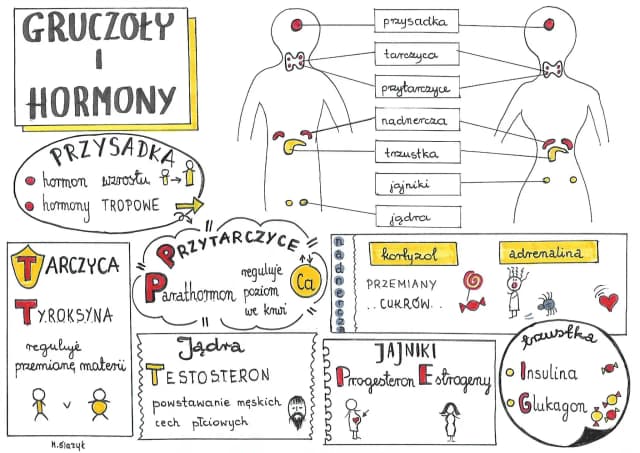 GRUCZOŁY
I
HORMONY
przysadka
tarczyca
przytarczyce
nadnercza
trzustka
jajniki
jądra
PRZYSADKA
hormon wzrostu
hormony TROPOWE
TARCZYCA
TYROKSYNA
reguluje
przemianę materii
PRZYTARCZYCE
Parathormon
reguluje
poziom
we krwi
Ca
nadnercza
kortyzol
PRZEMIANY
..CUKRÓW..
adrenalina
Jądra
TESTOSTERON
powstawanie męskich
cech płciowych
JAJNIKI
Progesteron Estrogeny
trzustka
Insulina
Glukagon